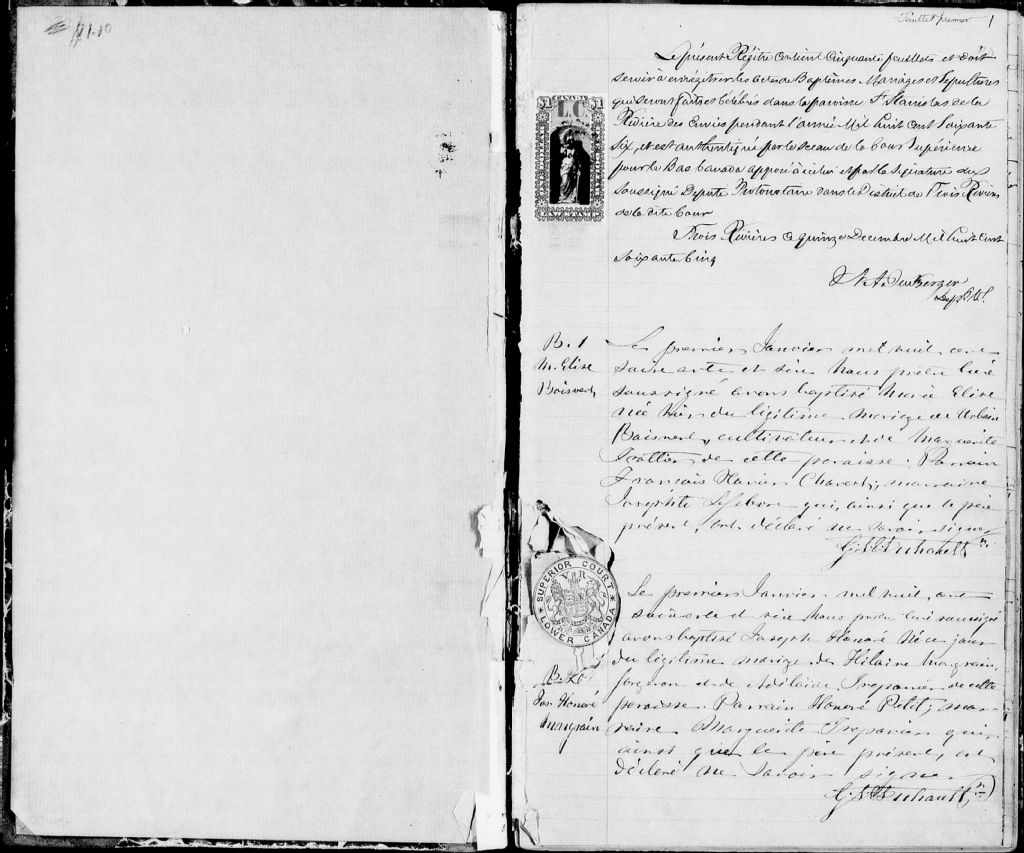 $1.10
Feuillet premier 1
Le présent Régître contient cinquante feuillets et doit
servir à enrégistrer les actes de Baptêmes Mariages et Sépultures
qui seront faits et célébrés dans la paroisse St Stanislas de la
Rivière des Envies pendant l'année Mil huit cent soixante
six, et est authentiqué par le sceau de la Cour Supérieure
pour le Bas Canada apposé à icelui et par la signature du
soussigné Député Protonotaire dans le District de Trois Rivières
de la dite Cour
Trois Rivières ce quinze Decembre Mil huit cent
soixante cinq
Dep. P.C.S.
CANADA
$1 L.C. $1
B. 1
M. Elise
Boisvert
Le premier Janvier mil huit cent
soixante et six Nous prêtre curé
soussigné avons baptisé Marie Elise
née hier du légitime mariage de Urbain
Boisvert, cultivateur et de Marguerite
Trottier de cette paroisse. Parrain
François Xavier Charest, marraine
Josephte Lefebvre qui, ainsi que le père
présent, ont déclaré ne savoir signer
Ptre
SUPERIOR COURT
V R
LOWER CANADA
B. 2
Jos. Honoré
Mongrain
Le premier Janvier mil huit cent
soixante et six Nous prêtre curé soussigné
avons baptisé Joseph Honoré né ce jour
du légitime mariage de Hilaire Mongrain,
forgeron et de Adélaide Trepanier de cette
paroisse. Parrain Honoré Petit, mar-
raine Marguerite Trepanier qui,
ainsi que le père présent, ont
déclaré ne savoir signer
Ptre